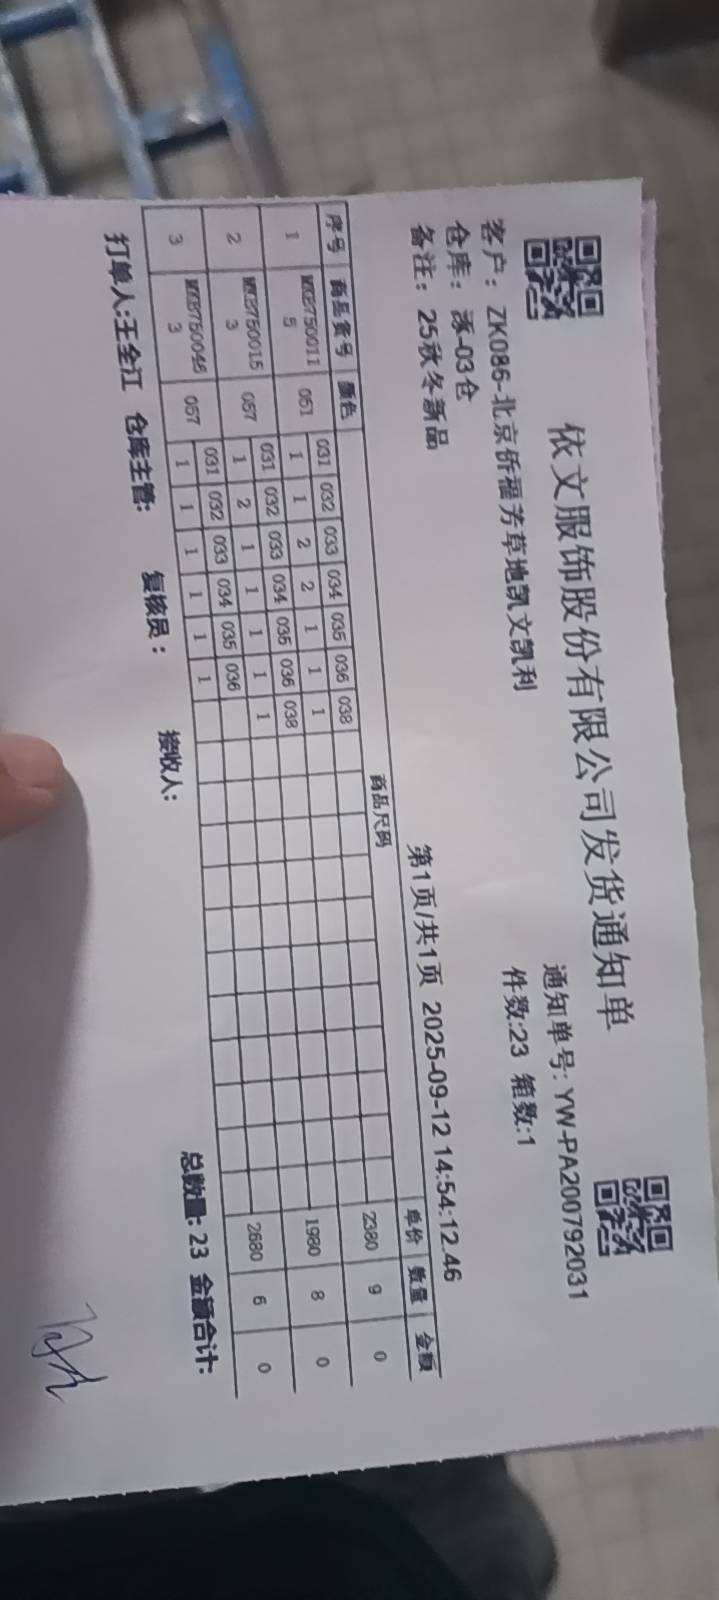 依文服饰股份有限公司发货通知单
通知单号: YW-PA200792031
客户: ZK086-北京侨福芳草地凯文凯利
件数:23 箱数:1
仓库: 涿-03仓
备注: 25秋冬新品
第1页/共1页 2025-09-12 14:54:12.46
序号 商品货号 颜色 商品尺码 单价 数量 金额
031 032 033 034 035 036 038
1 051 1 1 2 2 1 1 1 2380 9 0
031 032 033 034 035 036 038
2 057 1 2 1 1 1 1 1 1980 8 0
031 032 033 034 035 036
3 057 1 1 1 1 1 1 2680 6 0
总数量: 23 金额合计:
打单人:王全江 仓库主管: 复核员: 接收人: